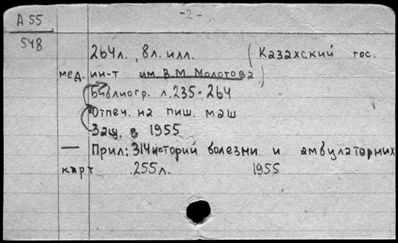 А 55
-2-
548
264л., 8л. илл. (Казахский гос.
мед. ин-т им В.М Молотова)
Библиогр. л.235-264
Отпеч. на пиш. маш
Защ. в 1955
— Прил: 314 историй болезни и амбулаторних
карт 255л. 1955